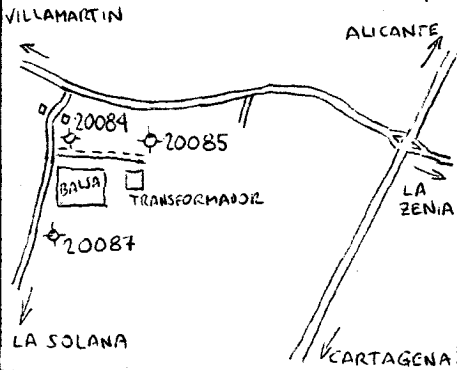 VILLAMARTIN
ALICANTE
20084
20085
BALSA
TRANSFORMADOR
LA
ZENIA
20087
LA SOLANA
CARTAGENA